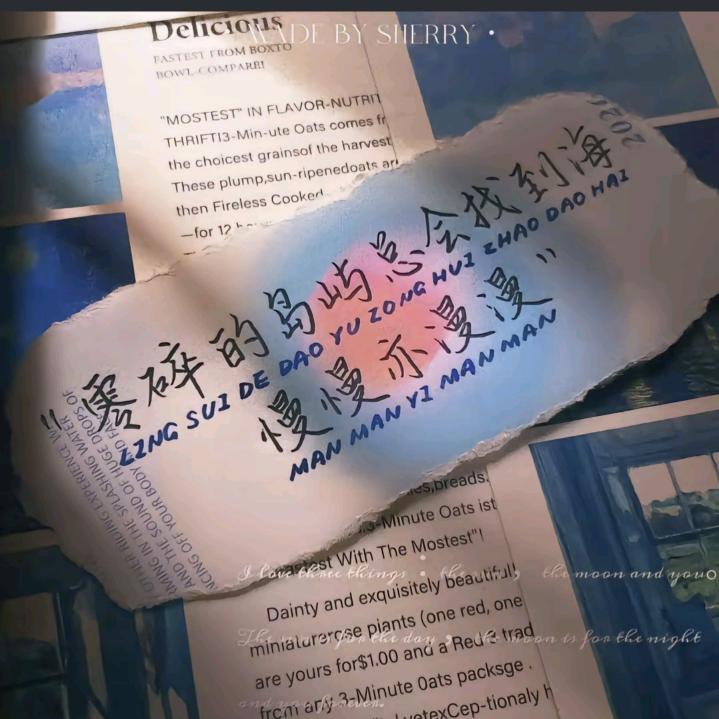 Delicious
MADE BY SHERRY •
FASTEST FROM BOXTO
BOWL-COMPARE!
"MOSTEST" IN FLAVOR-NUTRIT
THRIFTI3-Min-ute Oats comes fr
the choicest grainsof the harvest
These plump,sun-ripenedoats ar
then Fireless Cooked
—for 12 h
2020
"零碎的岛屿总会找到海
LING SUI DE DAO YU ZONG HUI ZHAO DAO HAI
慢慢亦漫漫"
MAN MAN YI MAN MAN
OTHER RIDING EXPERIENCE W
MING IN THE SPLASHING WATER
AND THE SOUND OF HUGE DROPS OF
NCING OFF YOUR BODY
es,breads.
3-Minute Oats ist
With The Mostest"!
I love three things : the sun , the moon and you
Dainty and exquisitely beautifull
miniaturerose piants (one red, one
The sun is for the day , the moon is for the night
are yours for$1.00 and a Red trad
from any 3-Minute 0ats packsge .
and you forever.
vetexCep-tionaly h